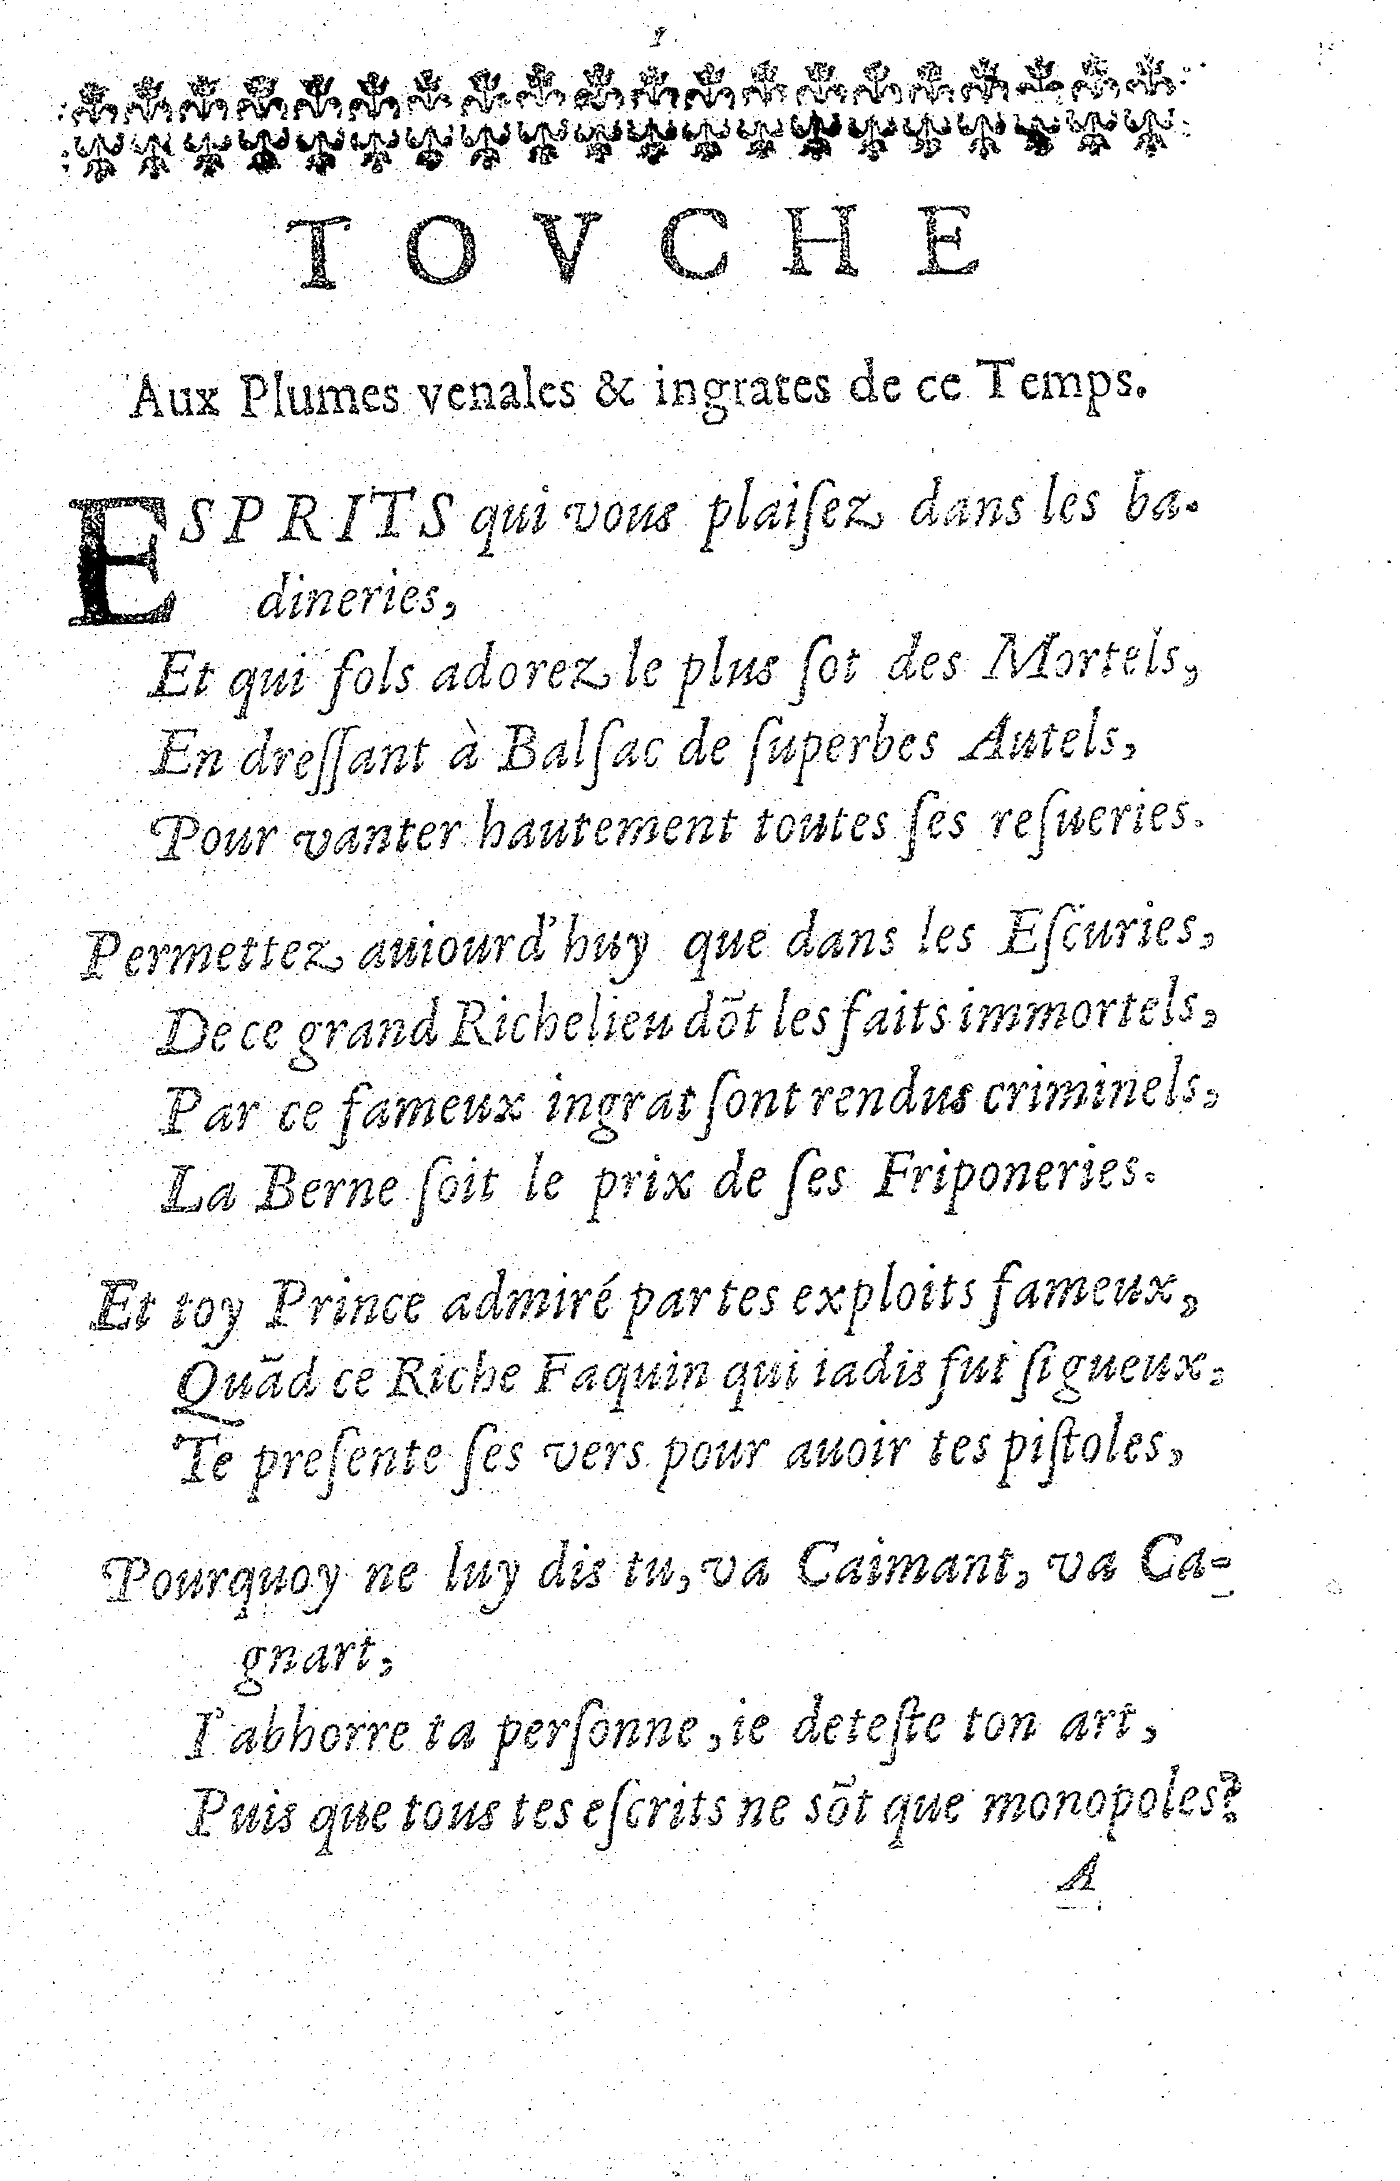 1.
TOVCHE
Aux Plumes venales & ingrates de ce Temps.
ESPRITS qui vous plaiſez dans les ba-
dineries,
Et qui fols adorez le plus ſot des Mortels,
En dreſſant à Balſac de ſuperbes Autels,
Pour vanter hautement toutes ſes reſueries.
Permettez auiourd'huy que dans les Eſcuries,
De ce grand Richelieu dõt les faits immortels,
Par ce fameux ingrat ſont rendus criminels,
La Berne ſoit le prix de ſes Friponeries.
Et toy Prince admiré par tes exploits fameux,
Quãd ce Riche Faquin qui iadis fut ſi gueux,
Te preſente ſes vers pour auoir tes piſtoles,
Pourquoy ne luy dis tu, va Caimant, va Ca-
gnart,
I'abhorre ta perſonne, ie deteſte ton art,
Puis que tous tes eſcrits ne sõt que monopoles?
A